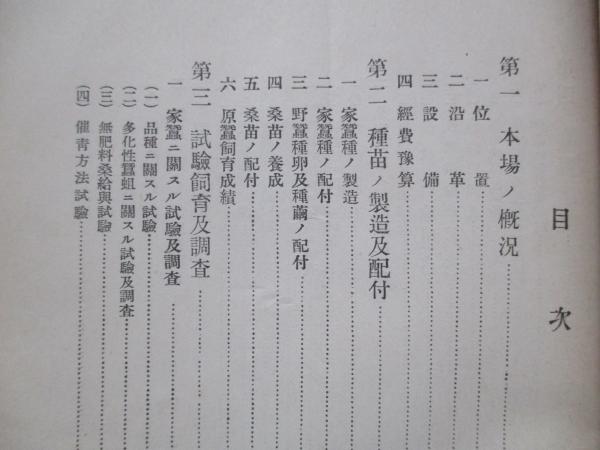 目次
第一 本場ノ概況
一 位置
二 沿革
三 設備
四 經費豫算
第二 種苗ノ製造及配付
一 家蠶種ノ製造
二 家蠶種ノ配付
三 野蠶種卵及種繭ノ配付
四 桑苗ノ養成
五 桑苗ノ配付
六 原蠶飼育成績
第三 試驗飼育及調査
一 家蠶ニ關スル試驗及調査
(一) 品種ニ關スル試驗
(二) 多化性蠶蛆ニ關スル試驗及調査
(三) 無肥料桑給與試驗
(四) 催靑方法試驗